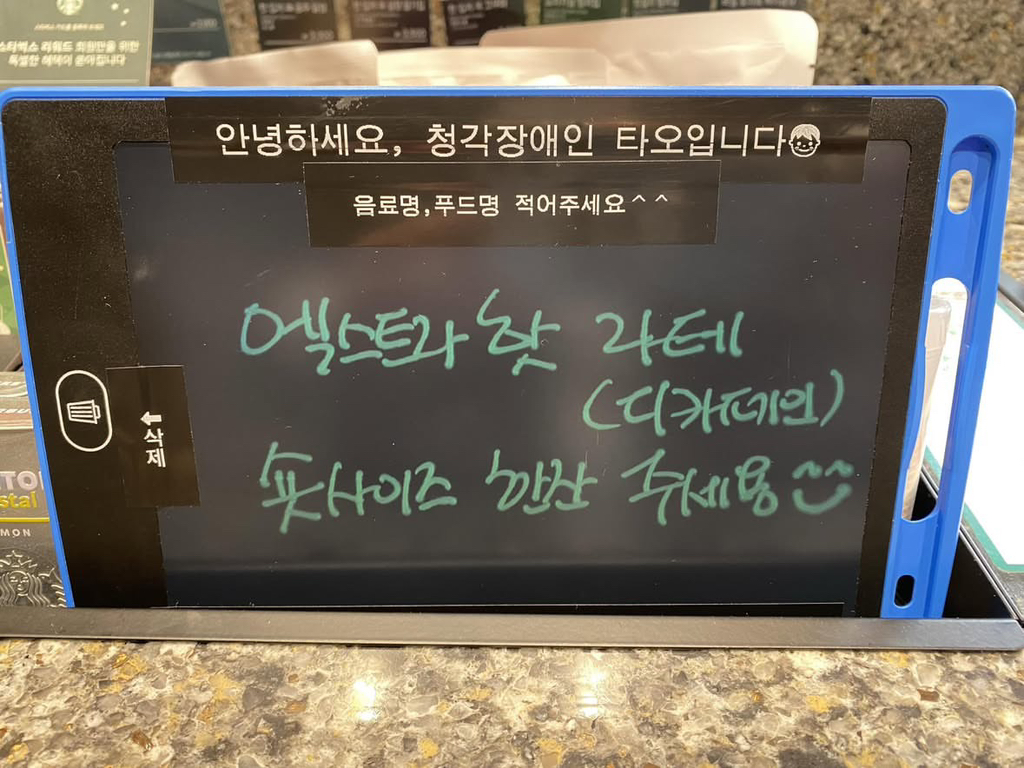 스타벅스 리워드 회원만을 위한
특별한 혜택이 쏟아집니다
안녕하세요, 청각장애인 타오입니다
음료명,푸드명 적어주세요^^
엑스트라 핫 라떼
(디카페인)
숏사이즈 한잔 주세용
삭제
stal
MON